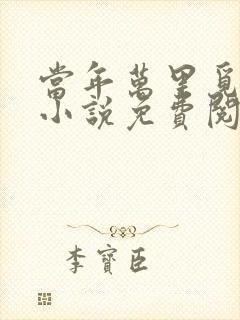 當年萬里覓
小說免費閱
李寶臣